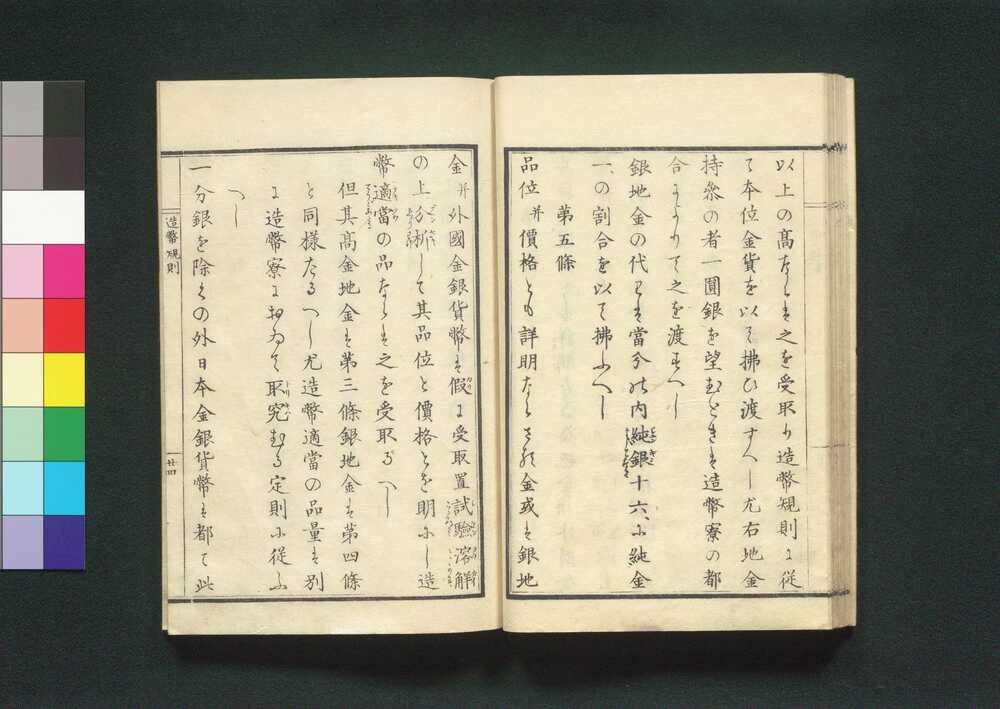 以上の高ならは之を受取り造幣規則に従
て本位金貨を以て拂ひ渡すへし尤右地金
持參の者一圓銀を望むときは造幣寮の都
合によりて之を渡すへし
銀地金の代りは當分の内純銀十六、に純金
一、の割合を以て拂ふへし
第五條
品位并價格とも詳明ならさる金或は銀地
金并外國金銀貨幣は假に受取置試驗溶解
の上分析して其品位と價格とを明にし造
幣適當の品ならは之を受取るへし
但其高金地金は第三條銀地金は第四條
と同様たるへし尤造幣適當の品量は別
に造幣寮に於ゐて取究むる定則に従ふ
へし
一分銀を除くの外日本金銀貨幣は都て此
造幣規則
廿四